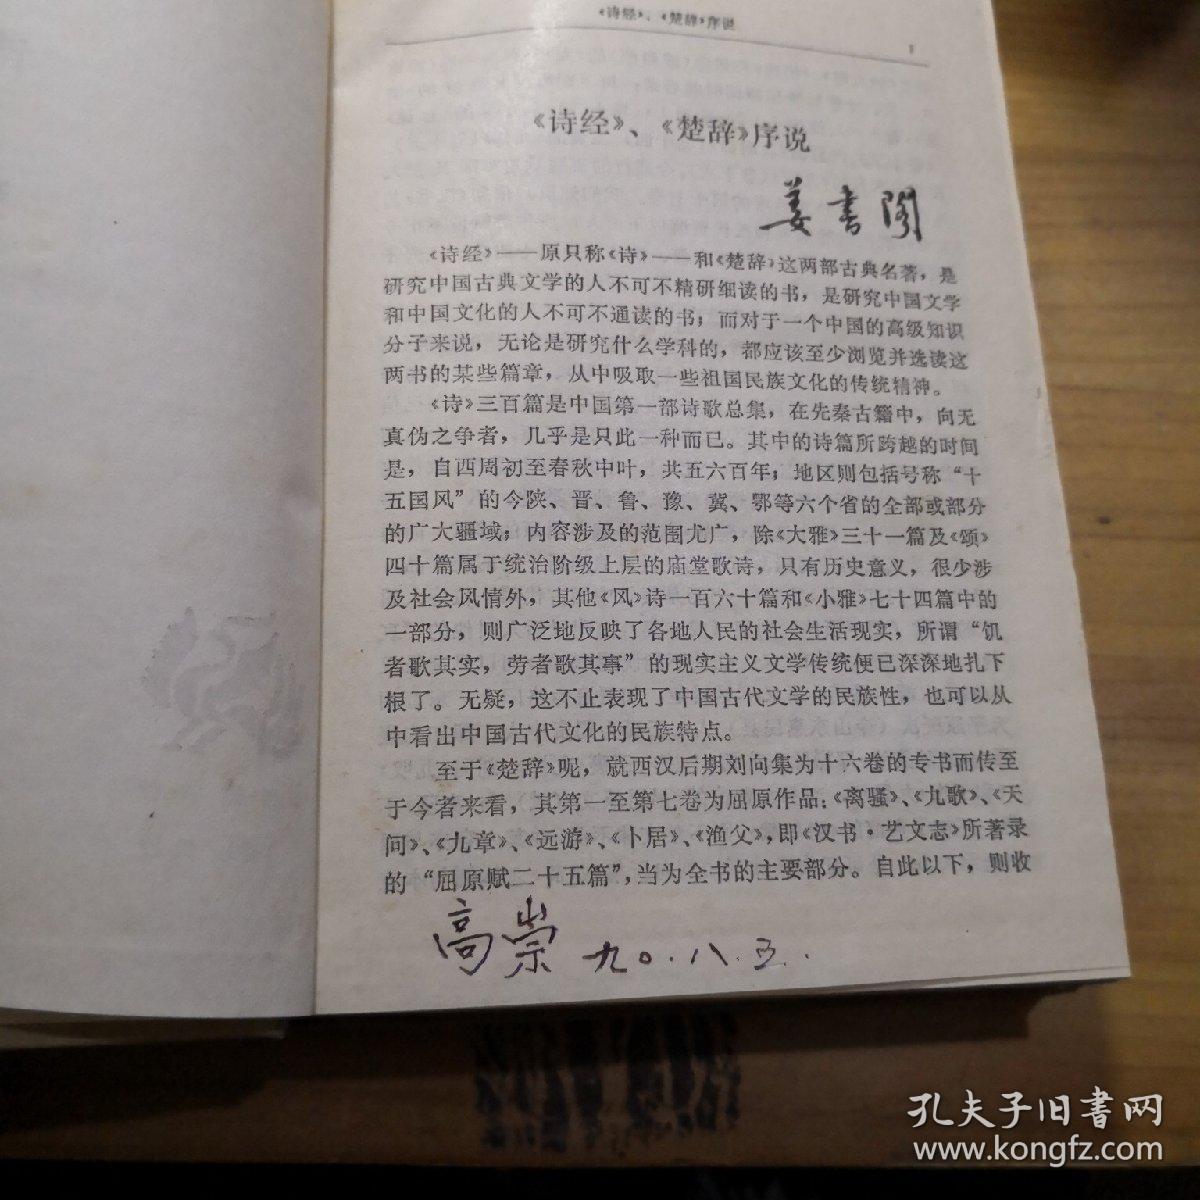 《诗经》、《楚辞》序说
1
《诗经》、《楚辞》序说
姜書阁
《诗经》——原只称《诗》——和《楚辞》这两部古典名著，是
研究中国古典文学的人不可不精研细读的书，是研究中国文学
和中国文化的人不可不通读的书；而对于一个中国的高级知识
分子来说，无论是研究什么学科的，都应该至少浏览并选读这
两书的某些篇章，从中吸取一些祖国民族文化的传统精神。
《诗》三百篇是中国第一部诗歌总集，在先秦古籍中，向无
真伪之争者，几乎是只此一种而已。其中的诗篇所跨越的时间
是，自西周初至春秋中叶，共五六百年；地区则包括号称“十
五国风”的今陕、晋、鲁、豫、冀、鄂等六个省的全部或部分
的广大疆域；内容涉及的范围尤广，除《大雅》三十一篇及《颂》
四十篇属于统治阶级上层的庙堂歌诗，只有历史意义，很少涉
及社会风情外，其他《风》诗一百六十篇和《小雅》七十四篇中的
一部分，则广泛地反映了各地人民的社会生活现实，所谓“饥
者歌其实，劳者歌其事”的现实主义文学传统便已深深地扎下
根了。无疑，这不止表现了中国古代文学的民族性，也可以从
中看出中国古代文化的民族特点。
至于《楚辞》呢，就西汉后期刘向集为十六卷的专书而传至
于今者来看，其第一至第七卷为屈原作品：《离骚》、《九歌》、《天
问》、《九章》、《远游》、《卜居》、《渔父》，即《汉书·艺文志》所著录
的“屈原赋二十五篇”，当为全书的主要部分。自此以下，则收
高崇 九〇.八.五.
孔夫子旧書网
www.kongfz.com